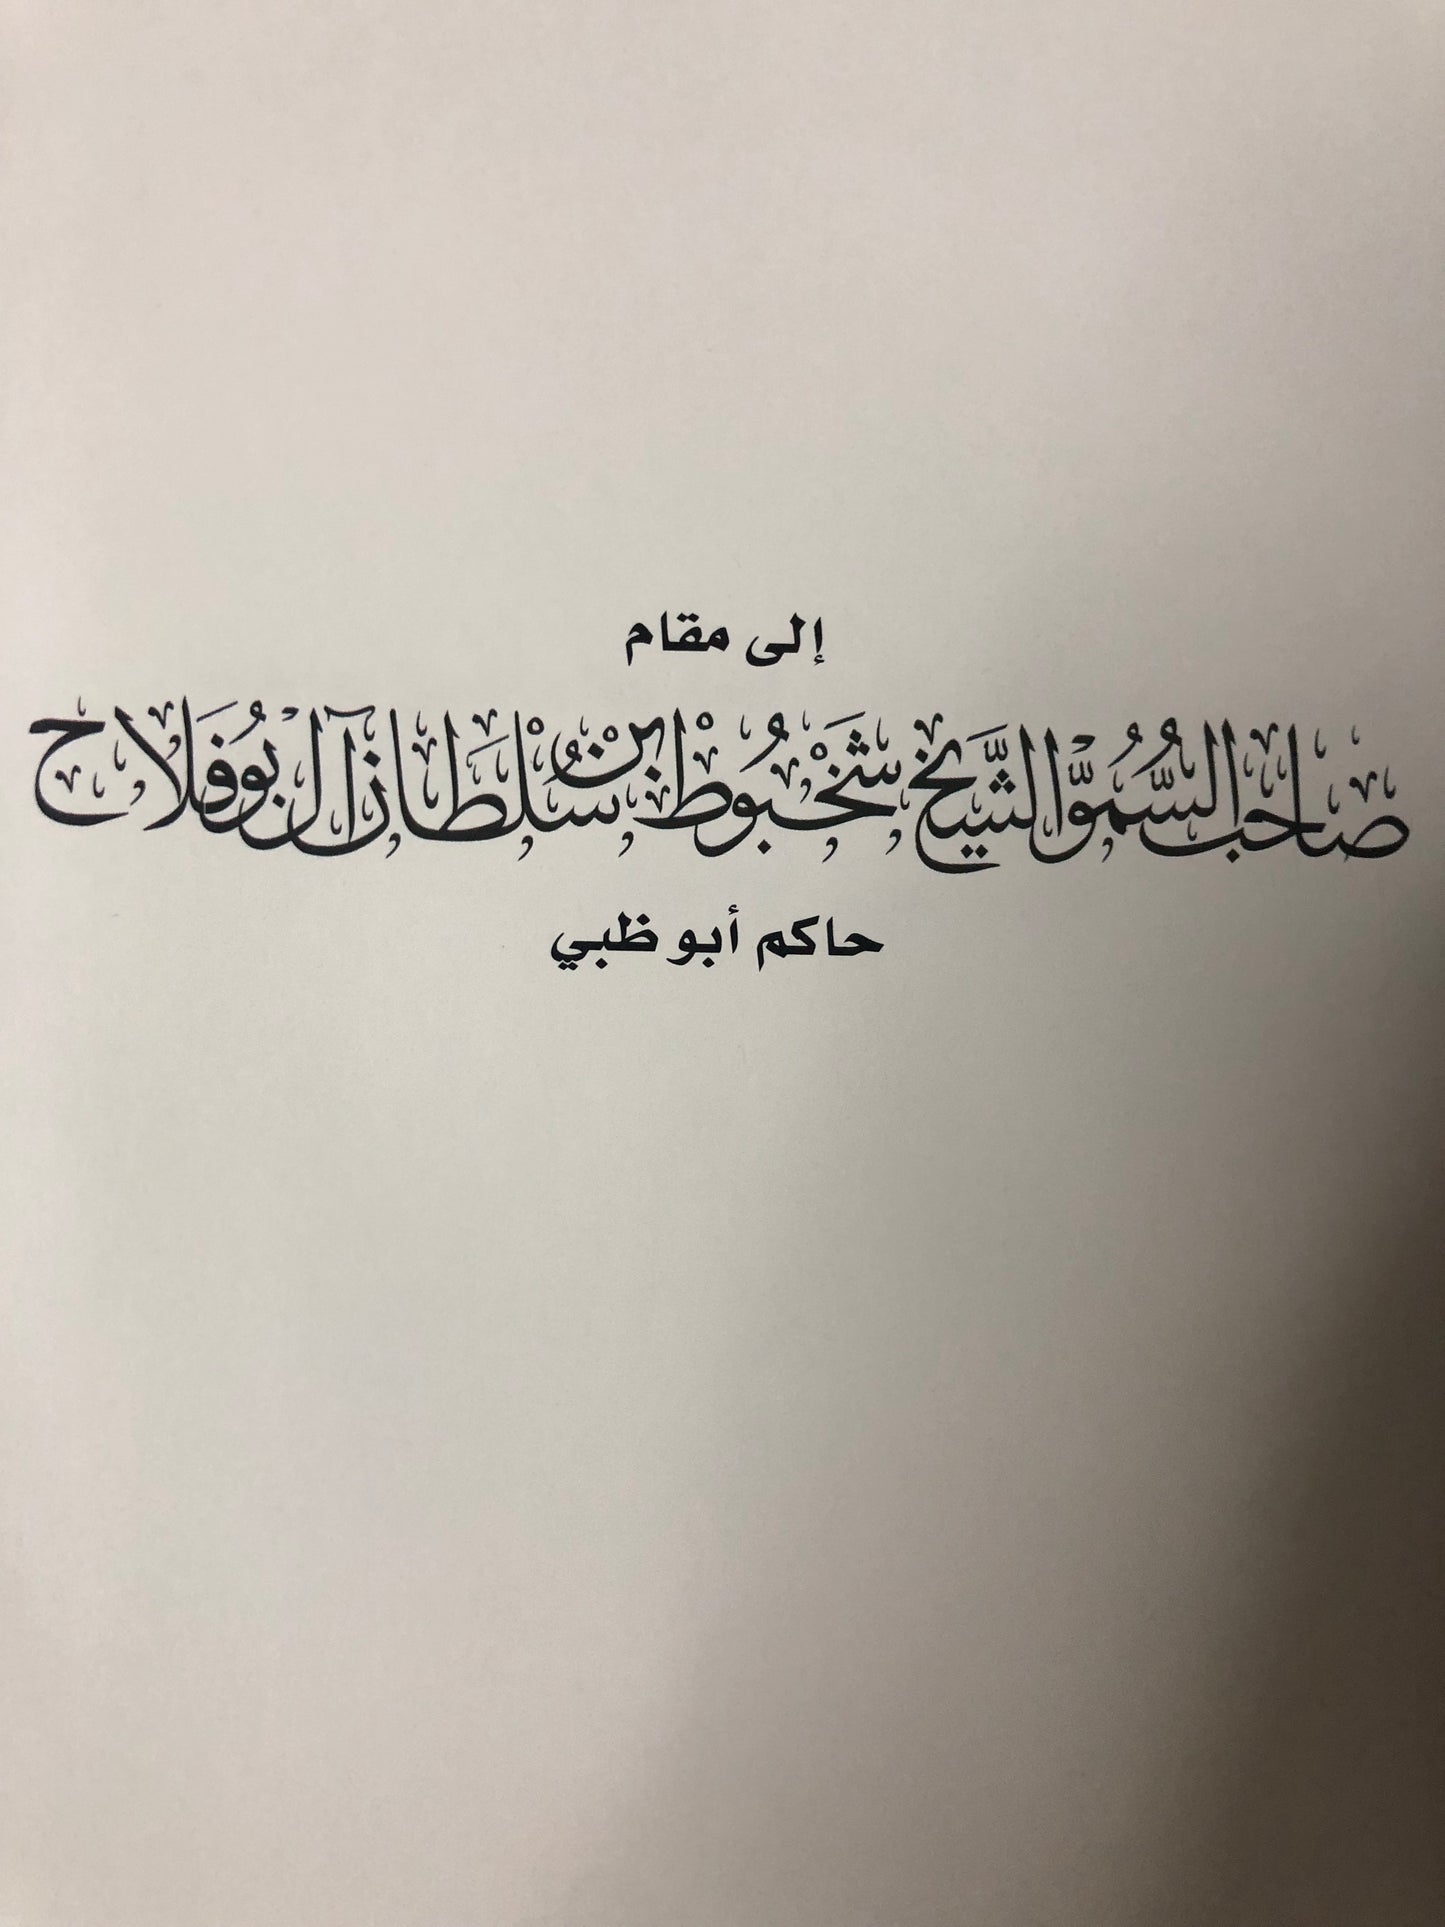 إلى مقام
صاحب السمو الشيخ شخبوط بن سلطان آل بوفلاح
حاكم أبو ظبي